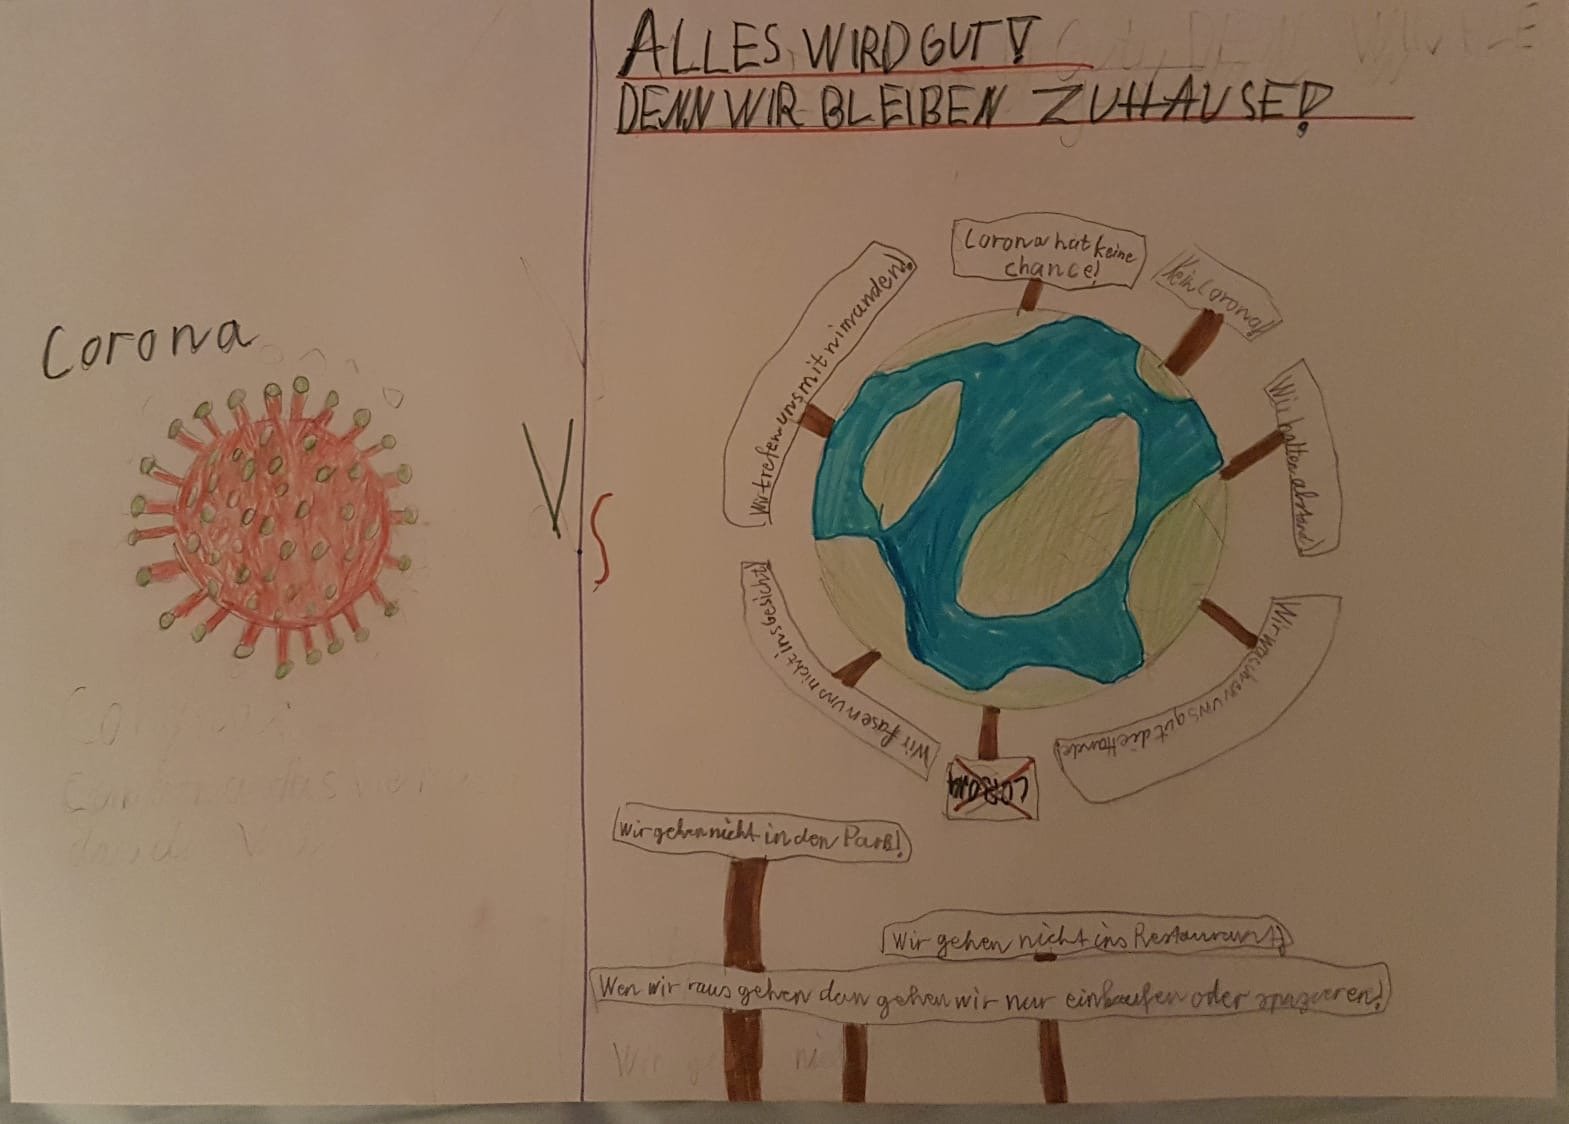 ALLES WIRD GUT!
DENN WIR BLEIBEN ZUHAUSE!
Corona
VS
Corona hat keine
chance!
Kein Corona!
Wir halten abstand!
Wir waschen uns gut die Hände!
CORONA
Wir fasen uns nicht ins Gesicht!
Wir trefen uns mit nimanden!
Wir gehen nicht in den Park!
Wir gehen nicht ins Restaurant!
Wen wir raus gehen dan gehen wir nur einkaufen oder spazieren!